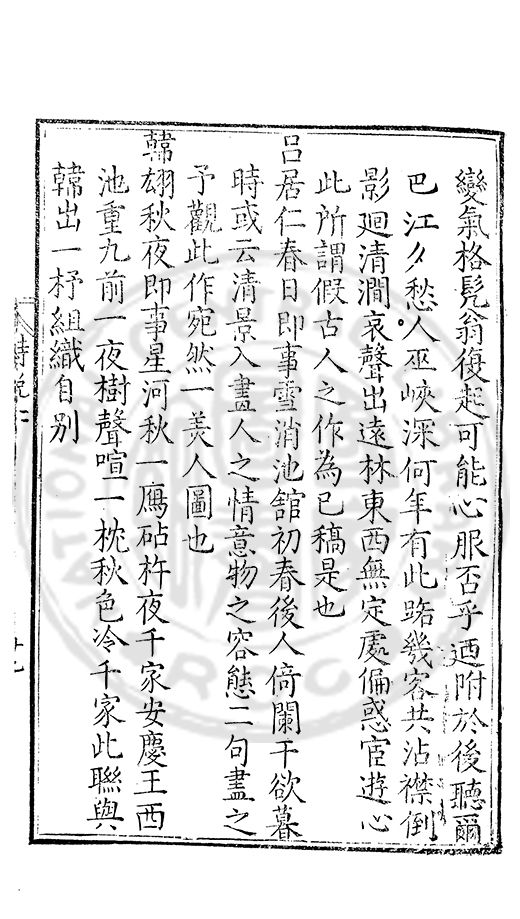 變氣格髡翁復起可能心服否乎廼附於後聽爾
巴江夕愁人巫峽深何年有此路幾客共沾襟倒
影廻清澗哀聲出遠林東西無定處偏惑宦遊心
此所謂假古人之作為已稿是也
呂居仁春日即事雪消池舘初春後人倚闌干欲暮
時或云清景入畫人之情意物之容態二句盡之
予觀此作宛然一美人圖也
韓翃秋夜即事星河秋一鴈砧杵夜千家安慶王西
池重九前一夜樹聲喧一枕秋色冷千家此聯與
韓出一杼組織自别
詩說二
十七